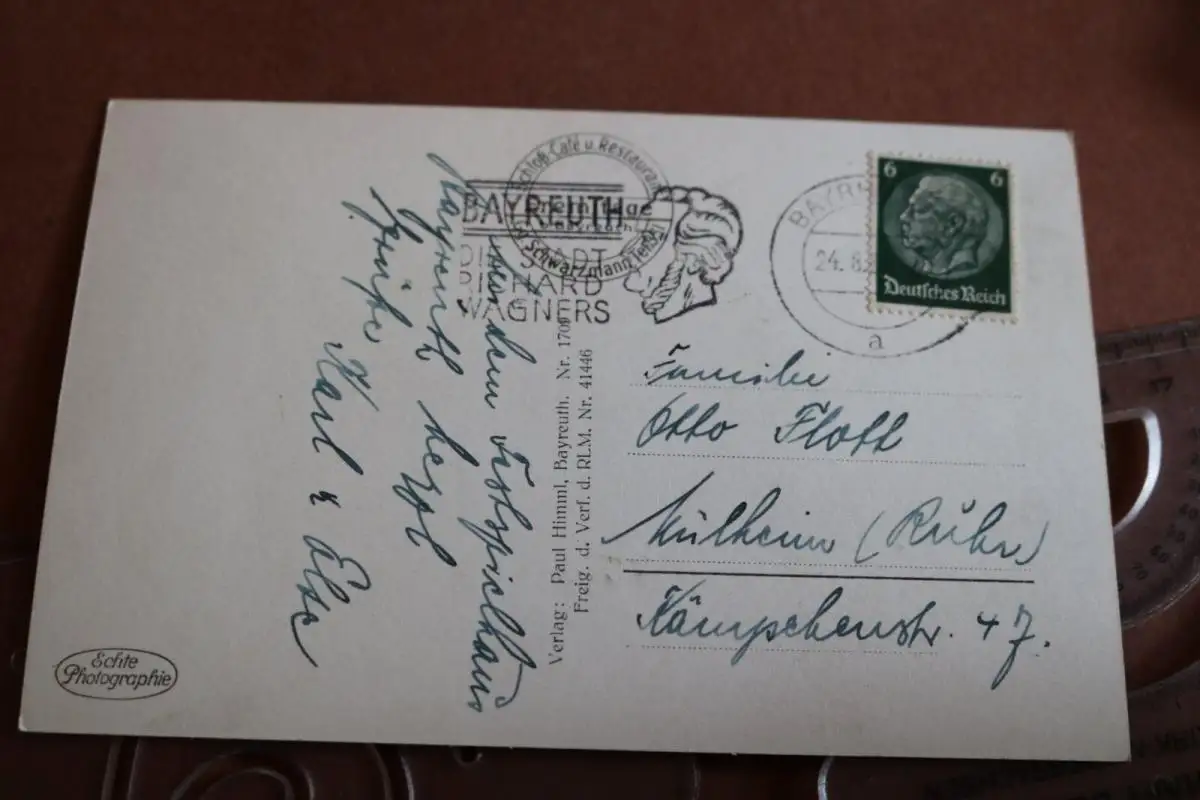 Schloß Café u. Restaurant
Schwarzmann
BAYREUTH
DIE STADT
RICHARD
WAGNERS
BAYR
24. 8.
a
6 6
Deutsches Reich
Von dem Festspielhaus
Bayreuth herzl
Grüße
Karl u Else
Verlag: Paul Himml, Bayreuth. Nr. 1709
Freig. d. Verf. d. RLM. Nr. 41446
Familie
Otto Flott
Mülheim (Ruhr)
Kämpchenstr. 47.
Echte
Photographie